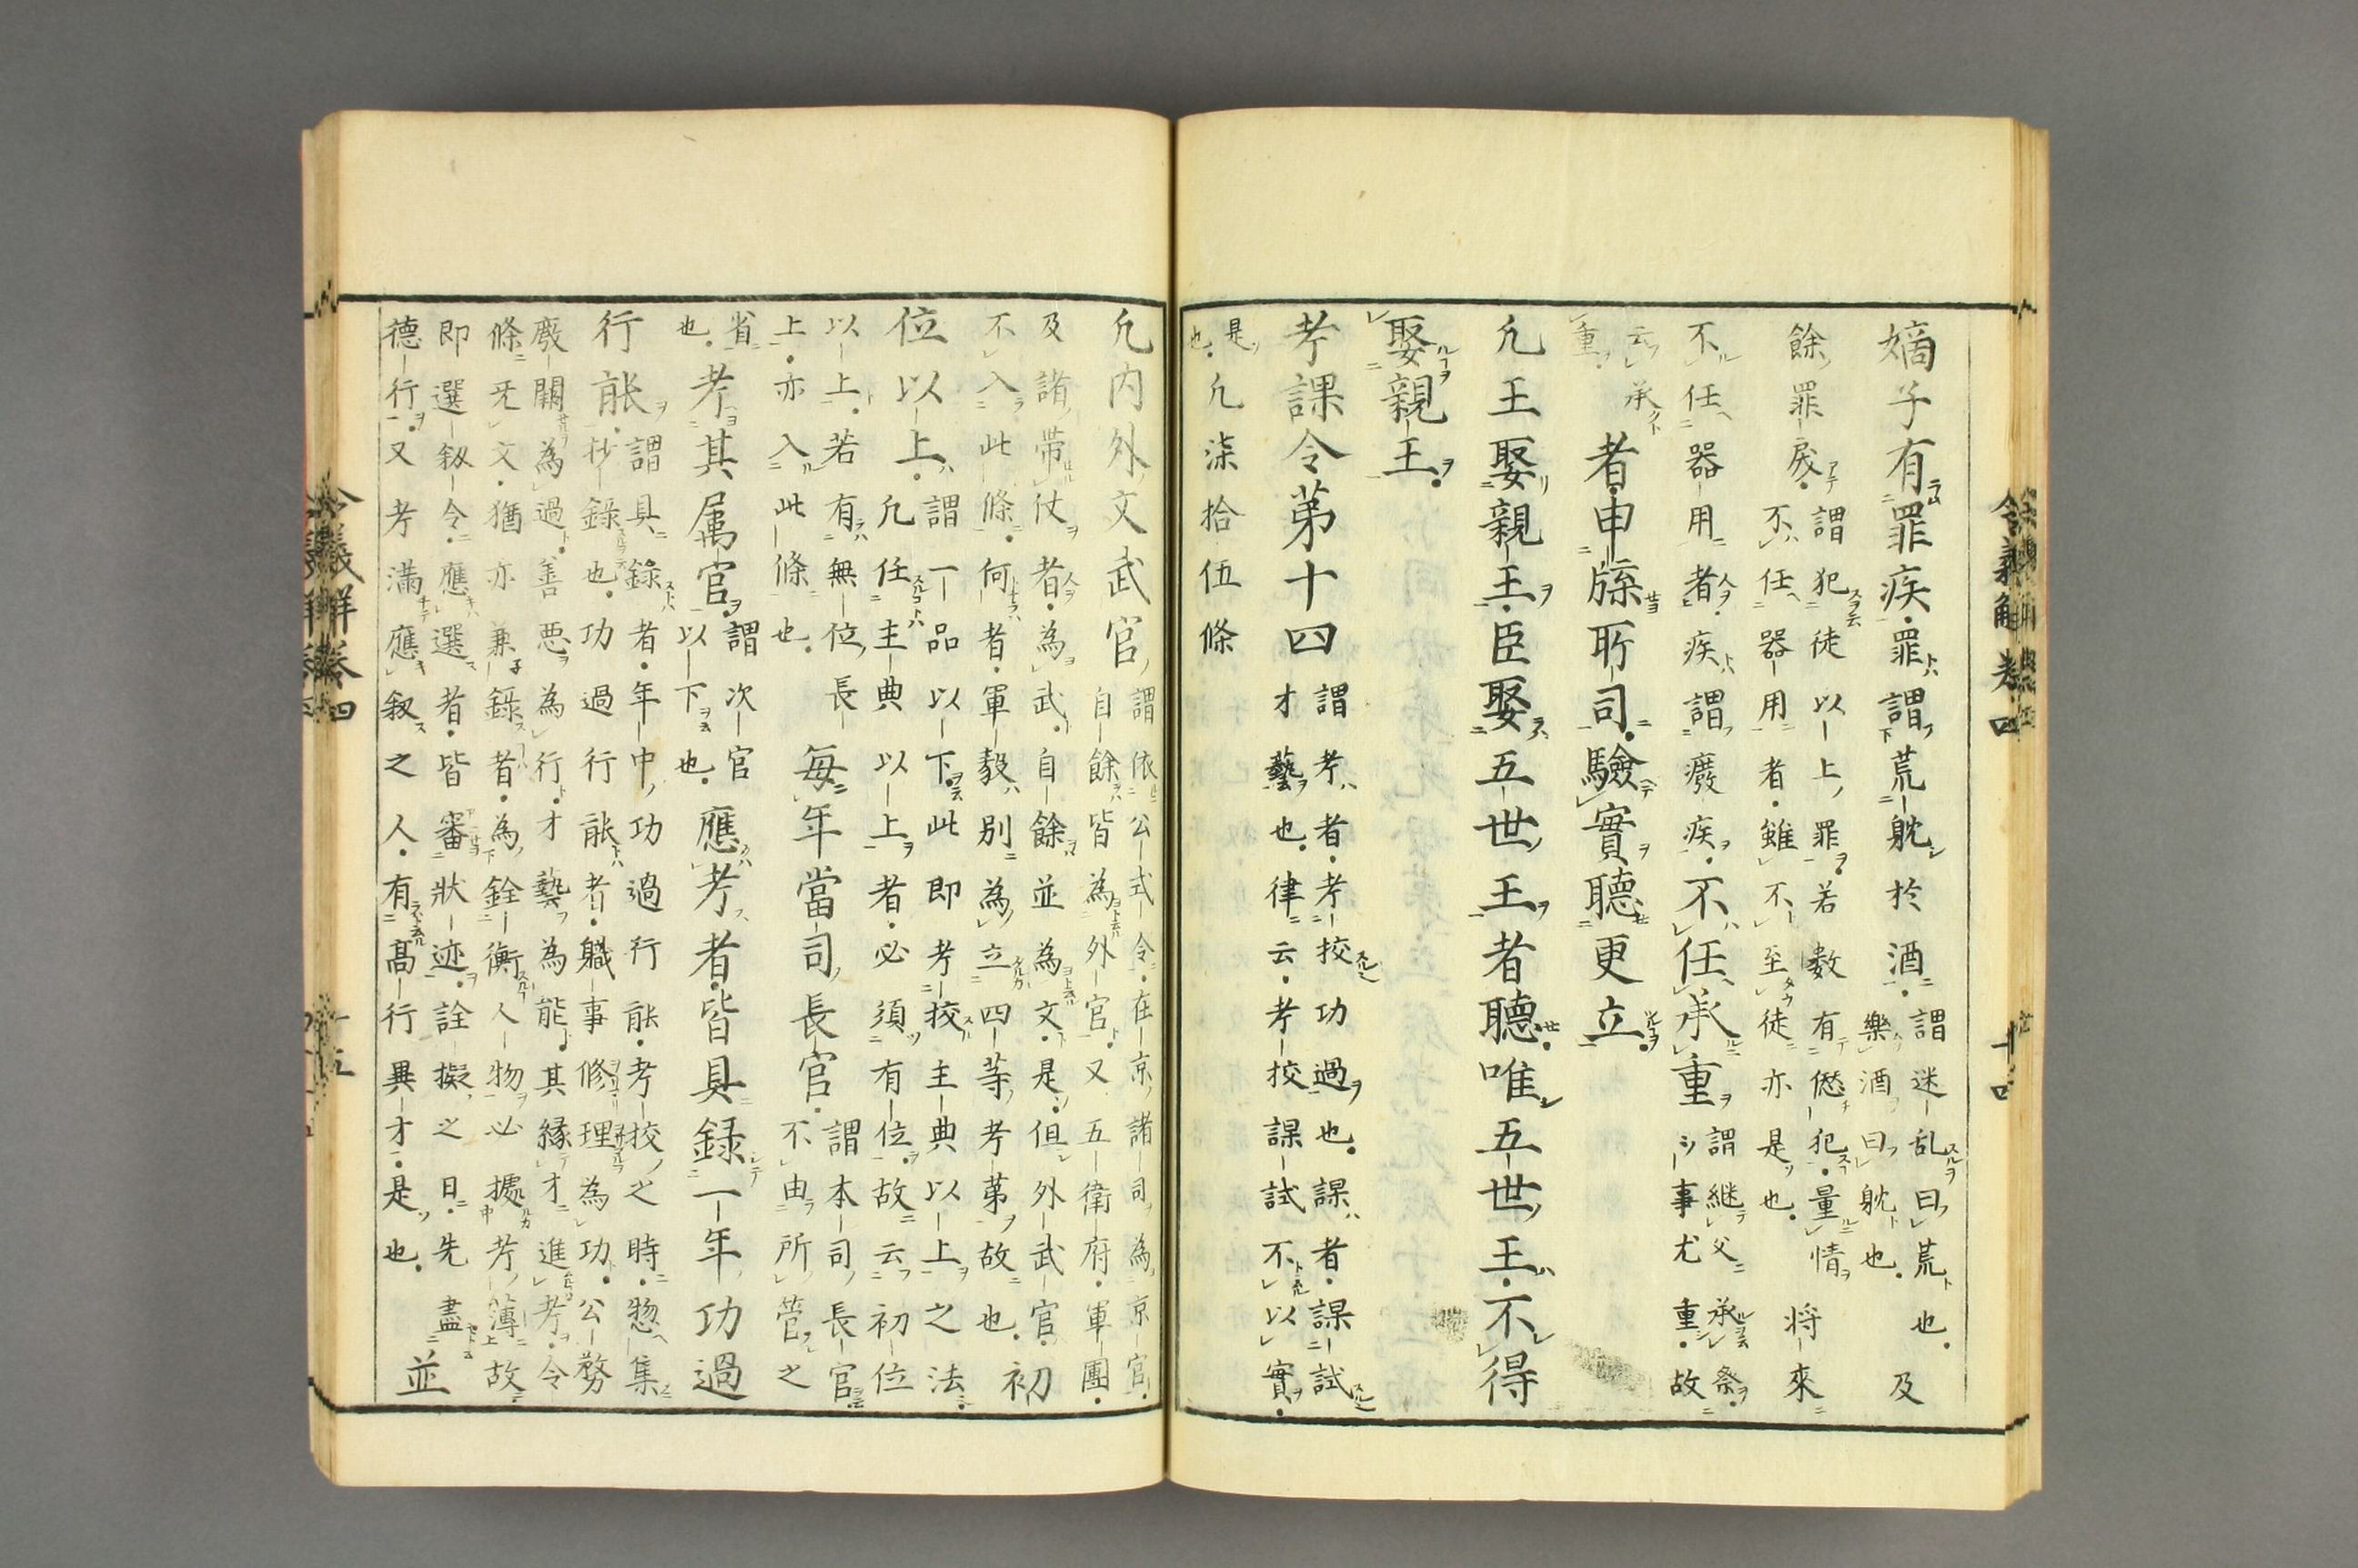 嫡子有罪疾。罪謂荒躭於酒。謂迷乱曰荒也。樂酒曰躭也。及
餘罪戾。謂犯徒以上罪。若數有愆犯。量情不任器用者。雖不至徒亦是也。將来
不任器用者。疾謂癈疾。不任承重。謂継父承祭。〻事尤重。故
云承重。者。申牒所司。驗實聽更立。
凡王娶親王。臣娶五世王者聽。唯五世王。不得
娶親王。
考課令第十四謂考者。考挍功過也。課者。課試才藝也。律云。考挍課試不以實。
是也。凡柒拾伍條
凡内外文武官。謂依公式令。在京諸司為京官。自餘皆為外官。又五衛府。軍團。
及諸帯仗者。為武。自餘並為文。是。但外武官。不入此條。何者。軍毅別為立四等考第。故也。初
位以上。謂一品以下。此即考挍主典以上之法。凡任主典以上者。必須有位。故云初位
以上。若有無位長上。亦入此條也。毎年當司長官。謂本司長官。不由所管之
省也。考其属官。謂次官以下也。應考者。皆具録一年功過
行能。謂具錄者。年中功過行能。考挍之時。惣集抄錄也。功過行能者。軄事修理為功。公務
廢闕為過。善悪為行。才藝為能。其縁才進考。令條无文。猶亦兼錄者。為銓衡人物必據考簿。故
即選叙令。應選者。皆審狀迹。詮擬之日。先盡德行。又考滿應叙之人。有髙行異才。是也。並
令義解卷四
十五